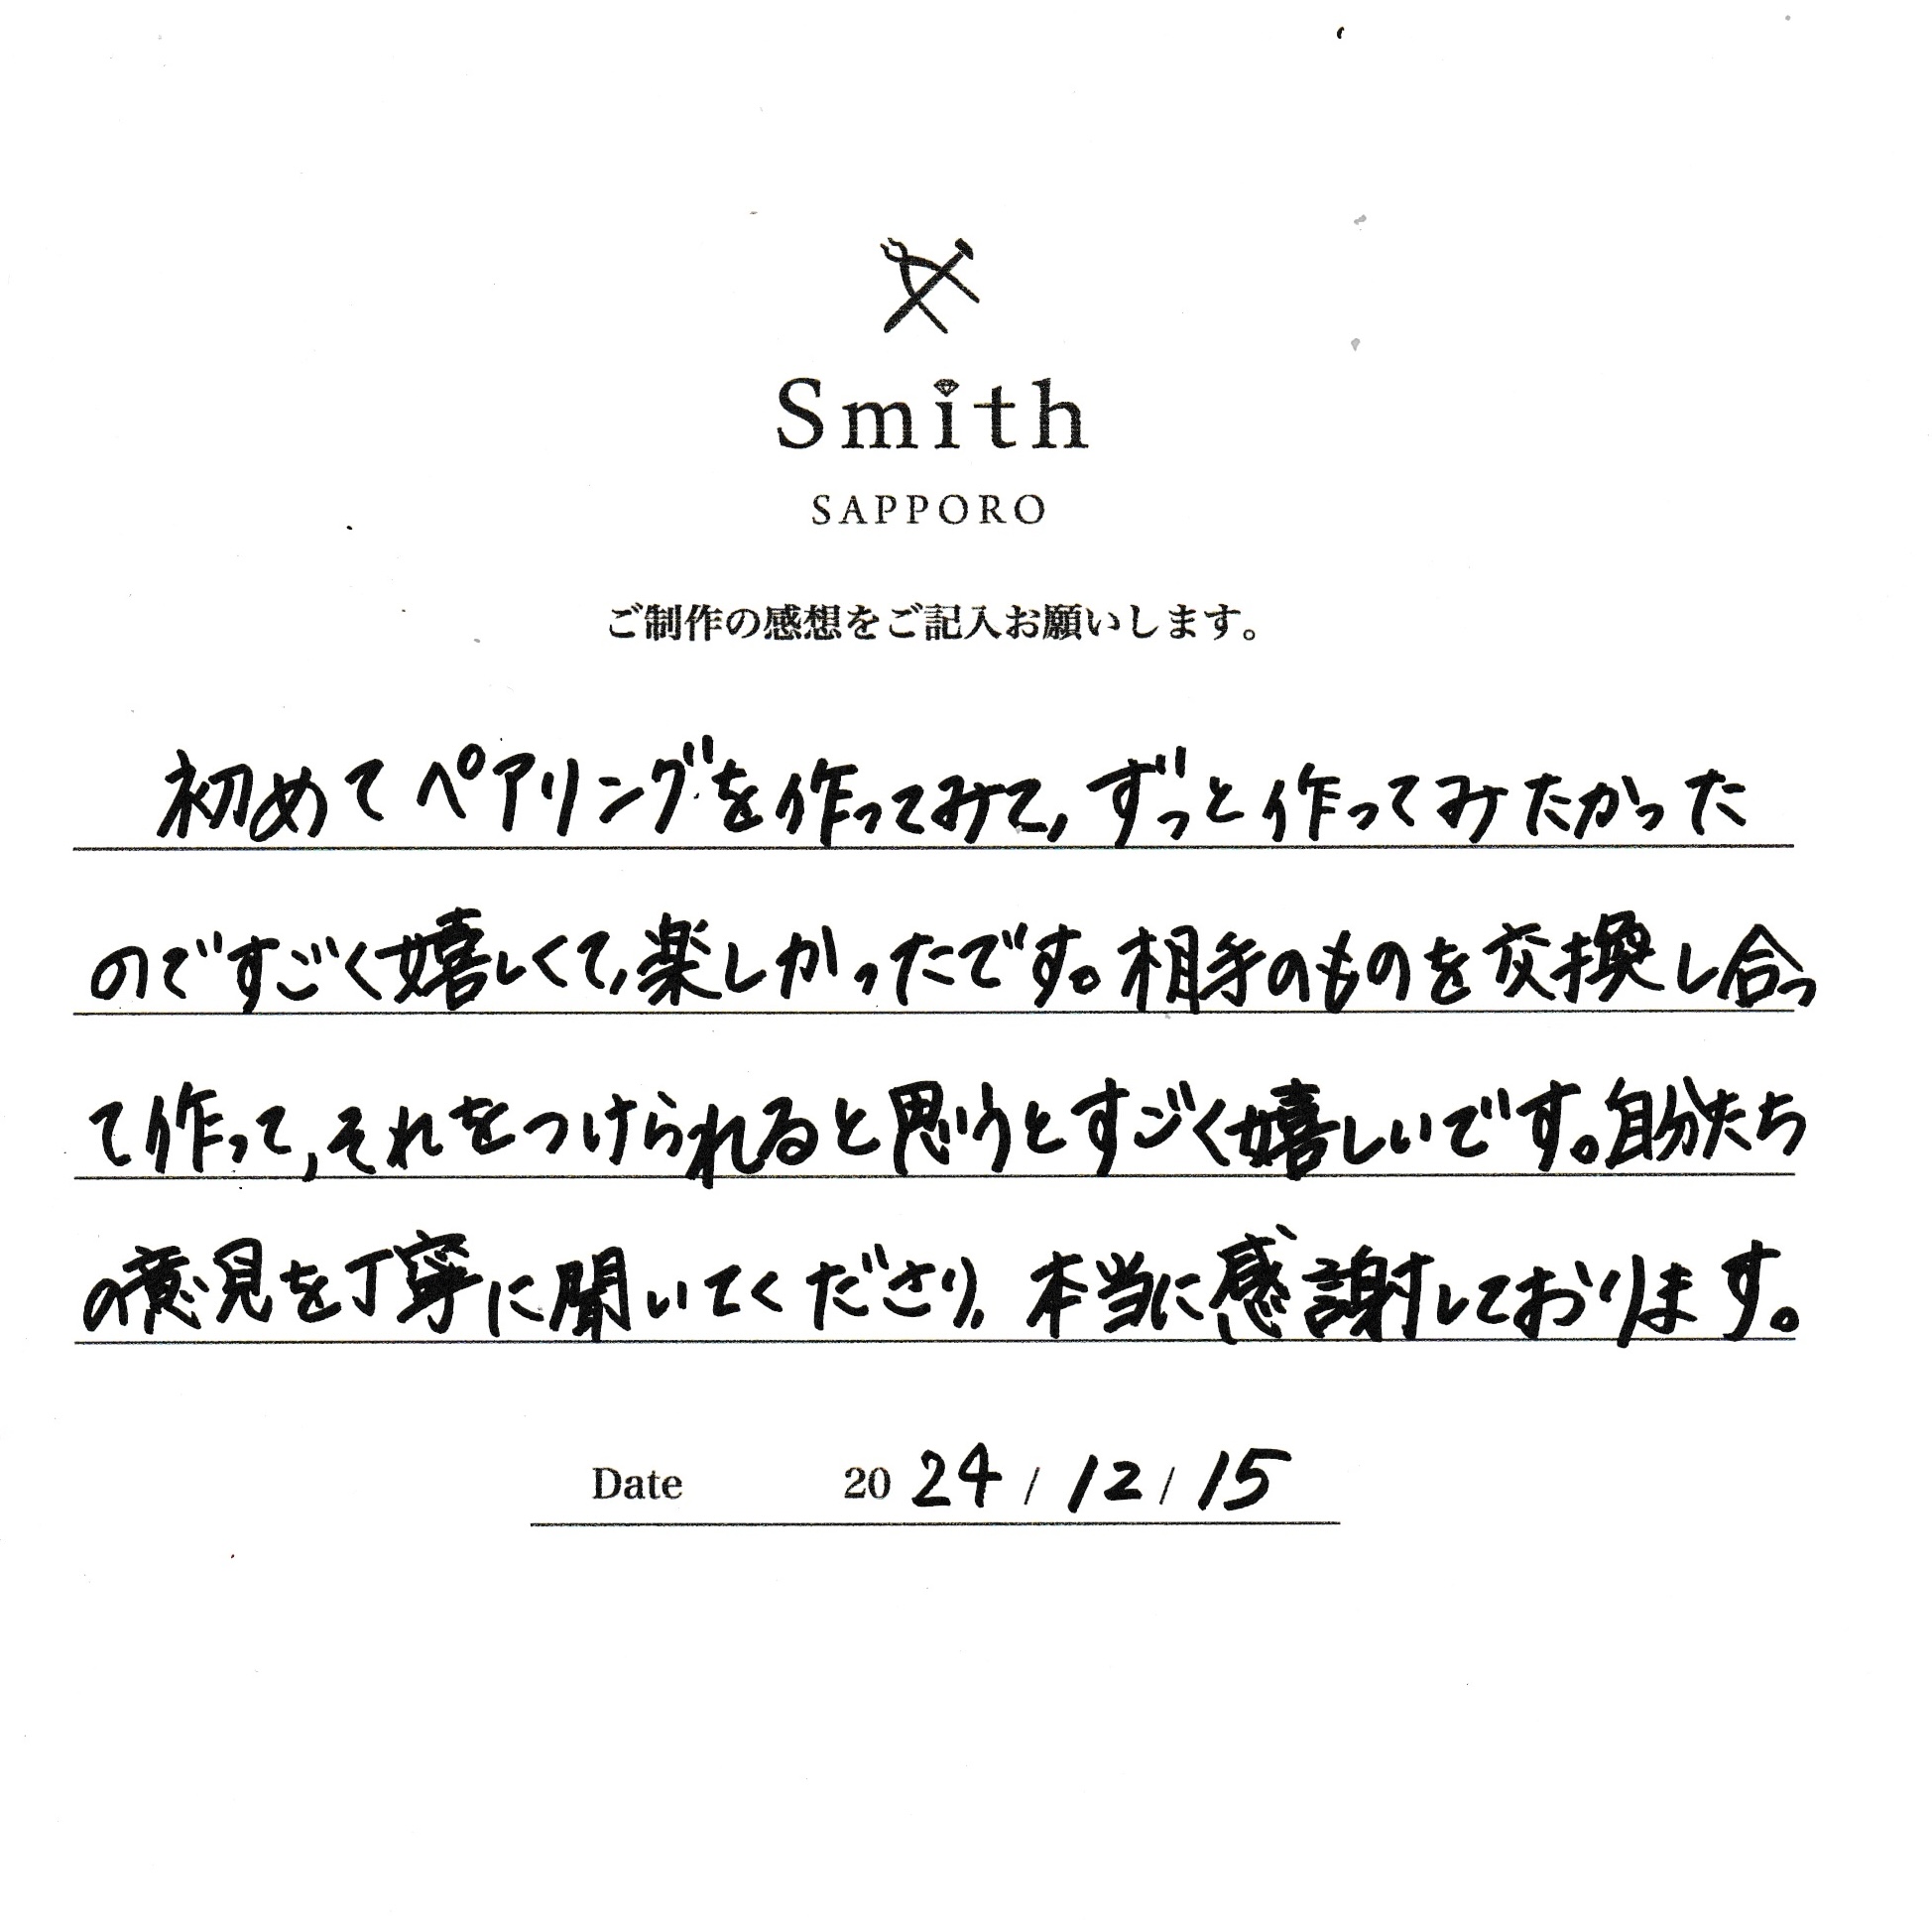 Smith
SAPPORO
ご制作の感想をご記入お願いします。
初めてペアリングを作ってみて,ずっと作ってみたかった
のですごく嬉しくて,楽しかったです。相手のものを交換し合っ
て作って,それをつけられると思うとすごく嬉しいです。自分たち
の意見を丁寧に聞いてくださり,本当に感謝しております。
Date 2024/12/15